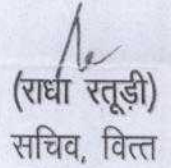 (राधा रतूड़ी)
सचिव, वित्त